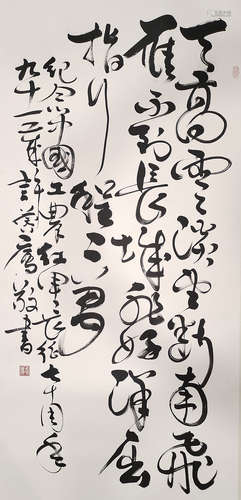 天高雲淡望斷南飛
雁不到長城非好漢屈
指行程二萬
紀念中國工農紅軍長征七十周年
九十歲敬書